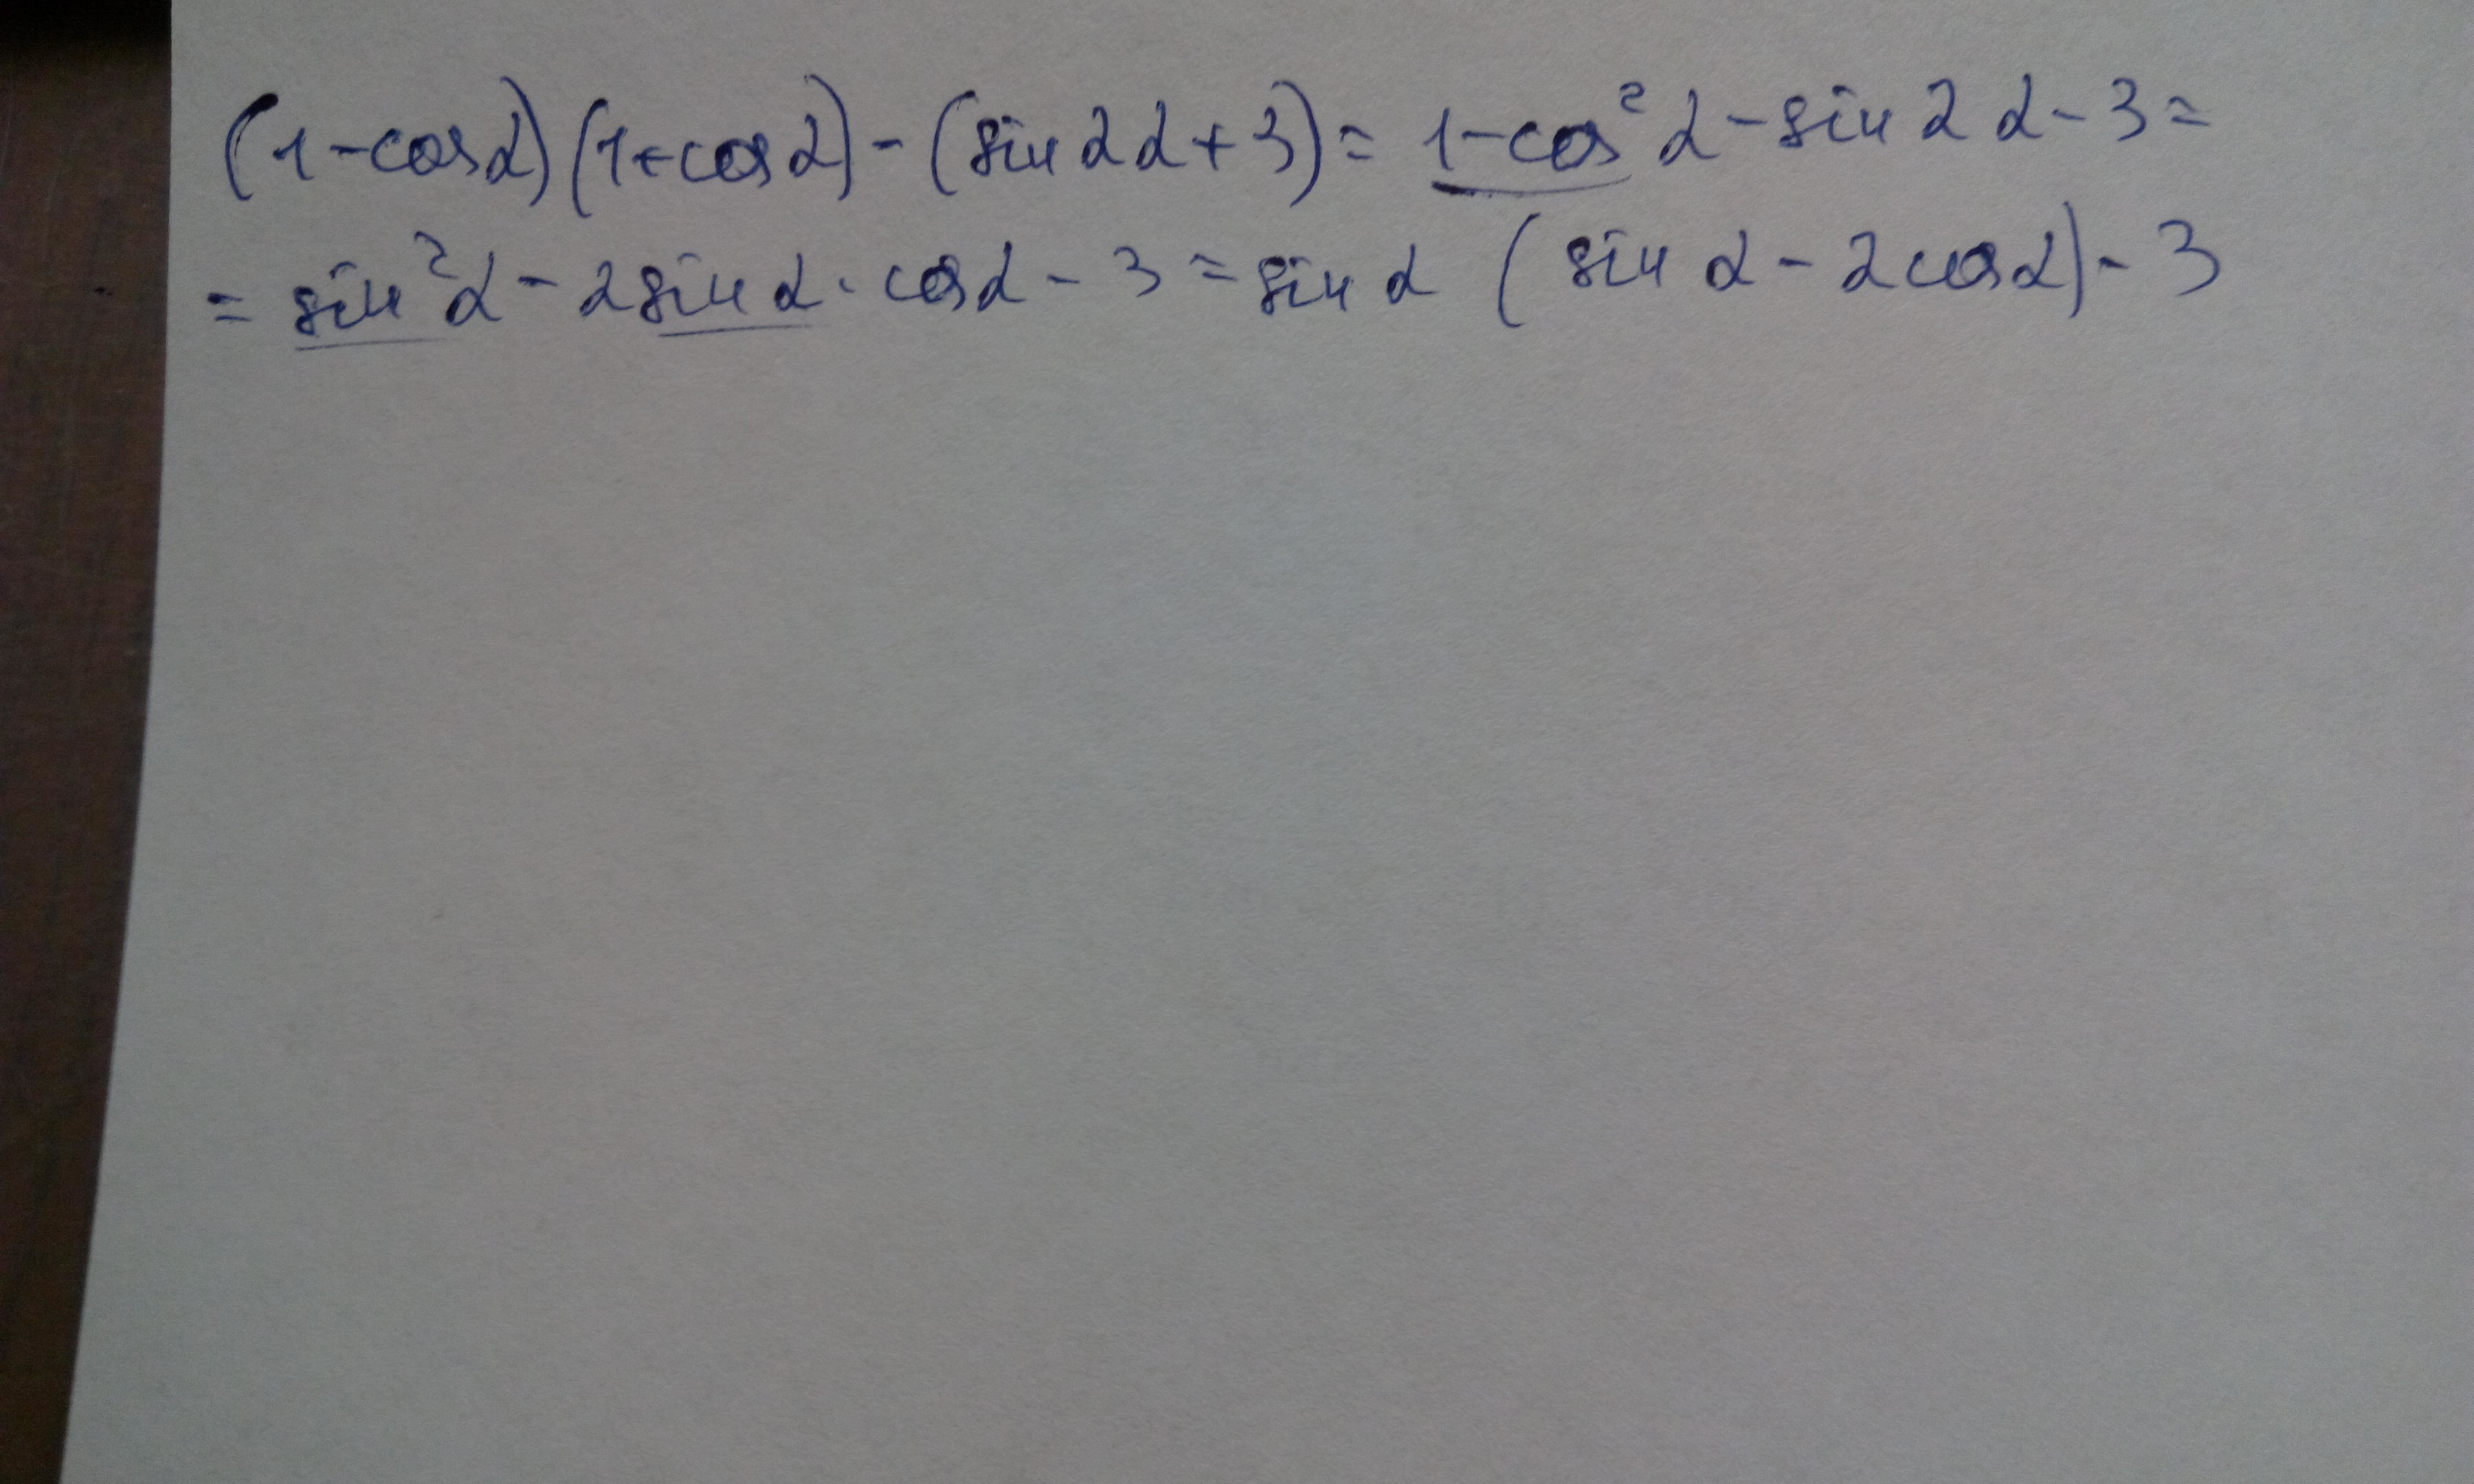 (1-cosα)(1+cosα)-(sin2α+3)=1-cos²α-sin2α-3=
=sin²α-2sinα·cosα-3=sinα(sinα-2cosα)-3